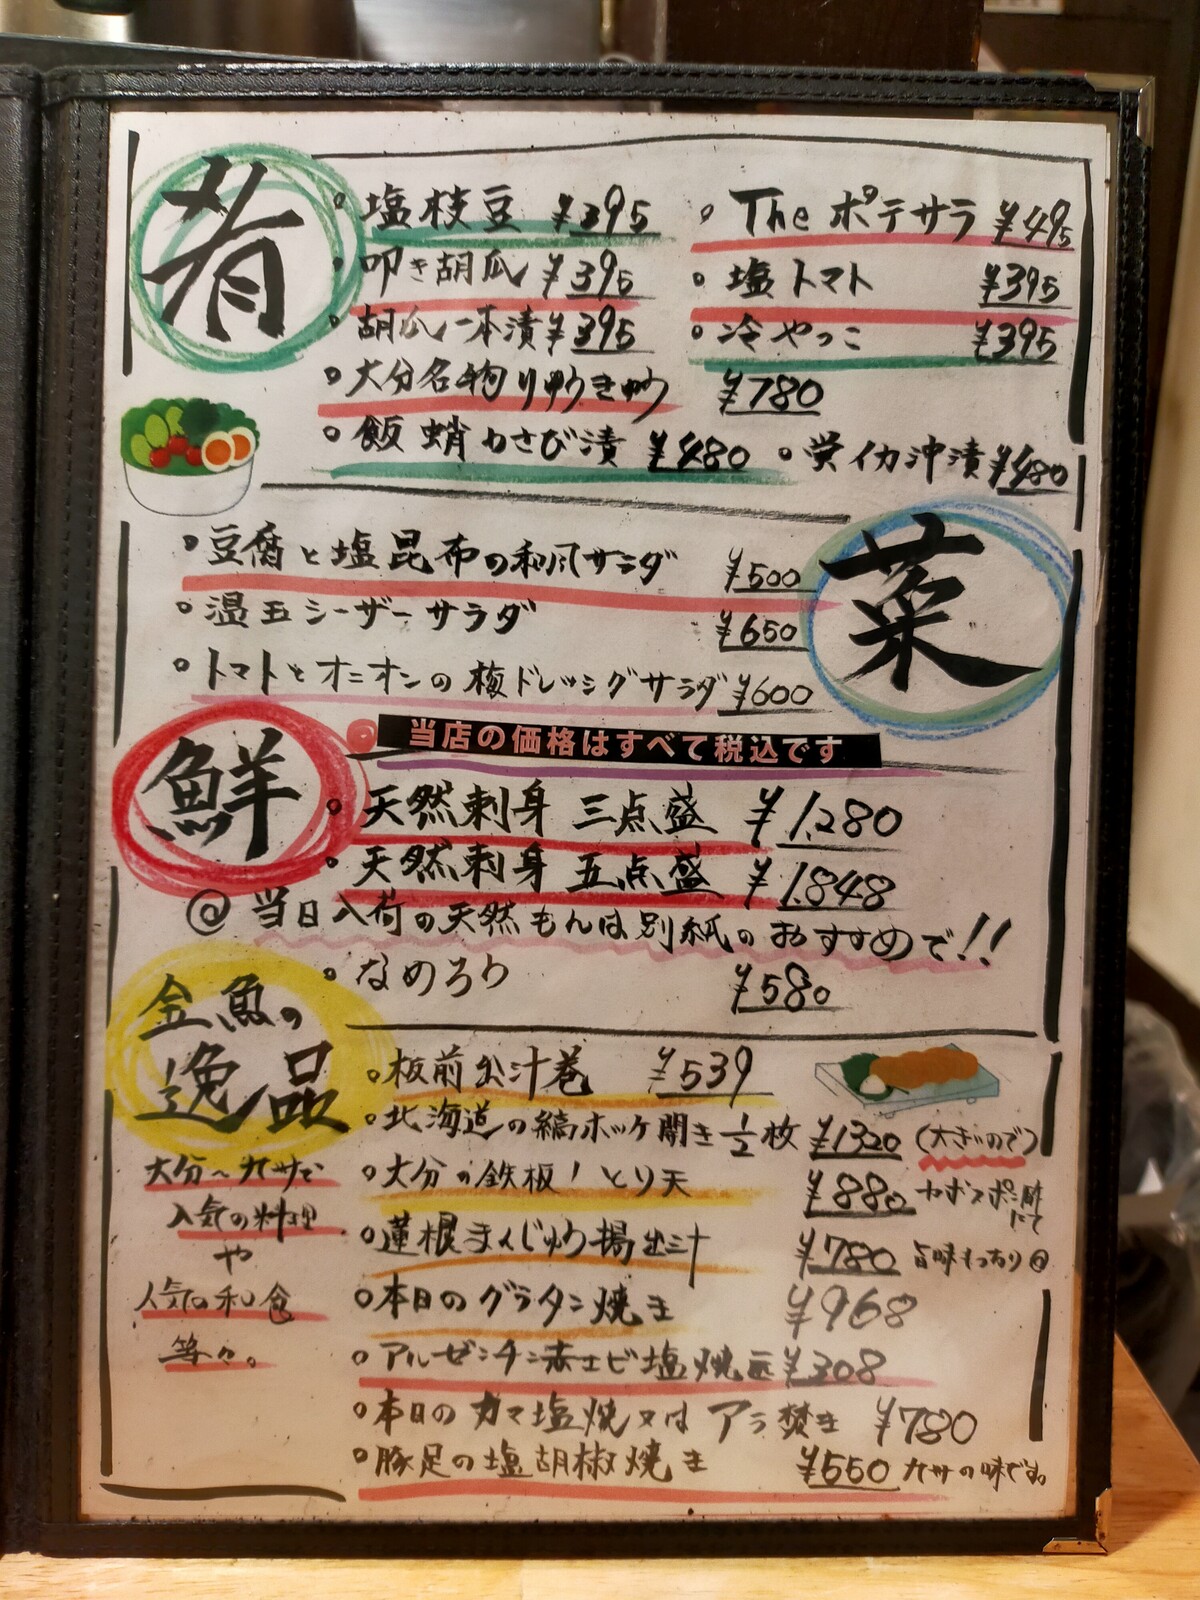 肴
◦塩枝豆 ¥395 ◦Theポテサラ ¥495
◦叩き胡瓜 ¥395 ◦塩トマト ¥395
◦胡瓜一本漬 ¥395 ◦冷やっこ ¥395
◦大分名物りゅうきゅう ¥780
◦飯蛸わさび漬 ¥480 ◦蛍イカ沖漬 ¥480
菜
◦豆腐と塩昆布の和風サラダ ¥500
◦温玉シーザーサラダ ¥650
◦トマトとオニオンの梅ドレッシングサラダ ¥600
当店の価格はすべて税込です
鮮
◦天然刺身 三点盛 ¥1,280
◦天然刺身 五点盛 ¥1,848
@当日入荷の天然もんは別紙のおすすめで!!
◦なめろう ¥580
金魚の
逸品
大分〜九州で
人気の料理
や
人気の和食
等々。
◦板前出汁巻 ¥539
◦北海道の縞ホッケ開き1/2枚 ¥1320 (大きいので)
◦大分の鉄板!とり天 ¥880 カボスポン酢にて
◦蓮根まんじゅう揚出汁 ¥780 旨味もっちり@
◦本日のグラタン焼き ¥968
◦アルゼンチン赤エビ塩焼 ¥308
◦本日のカマ塩焼又はアラ焚き ¥780
◦豚足の塩胡椒焼き ¥550 九州の味です。